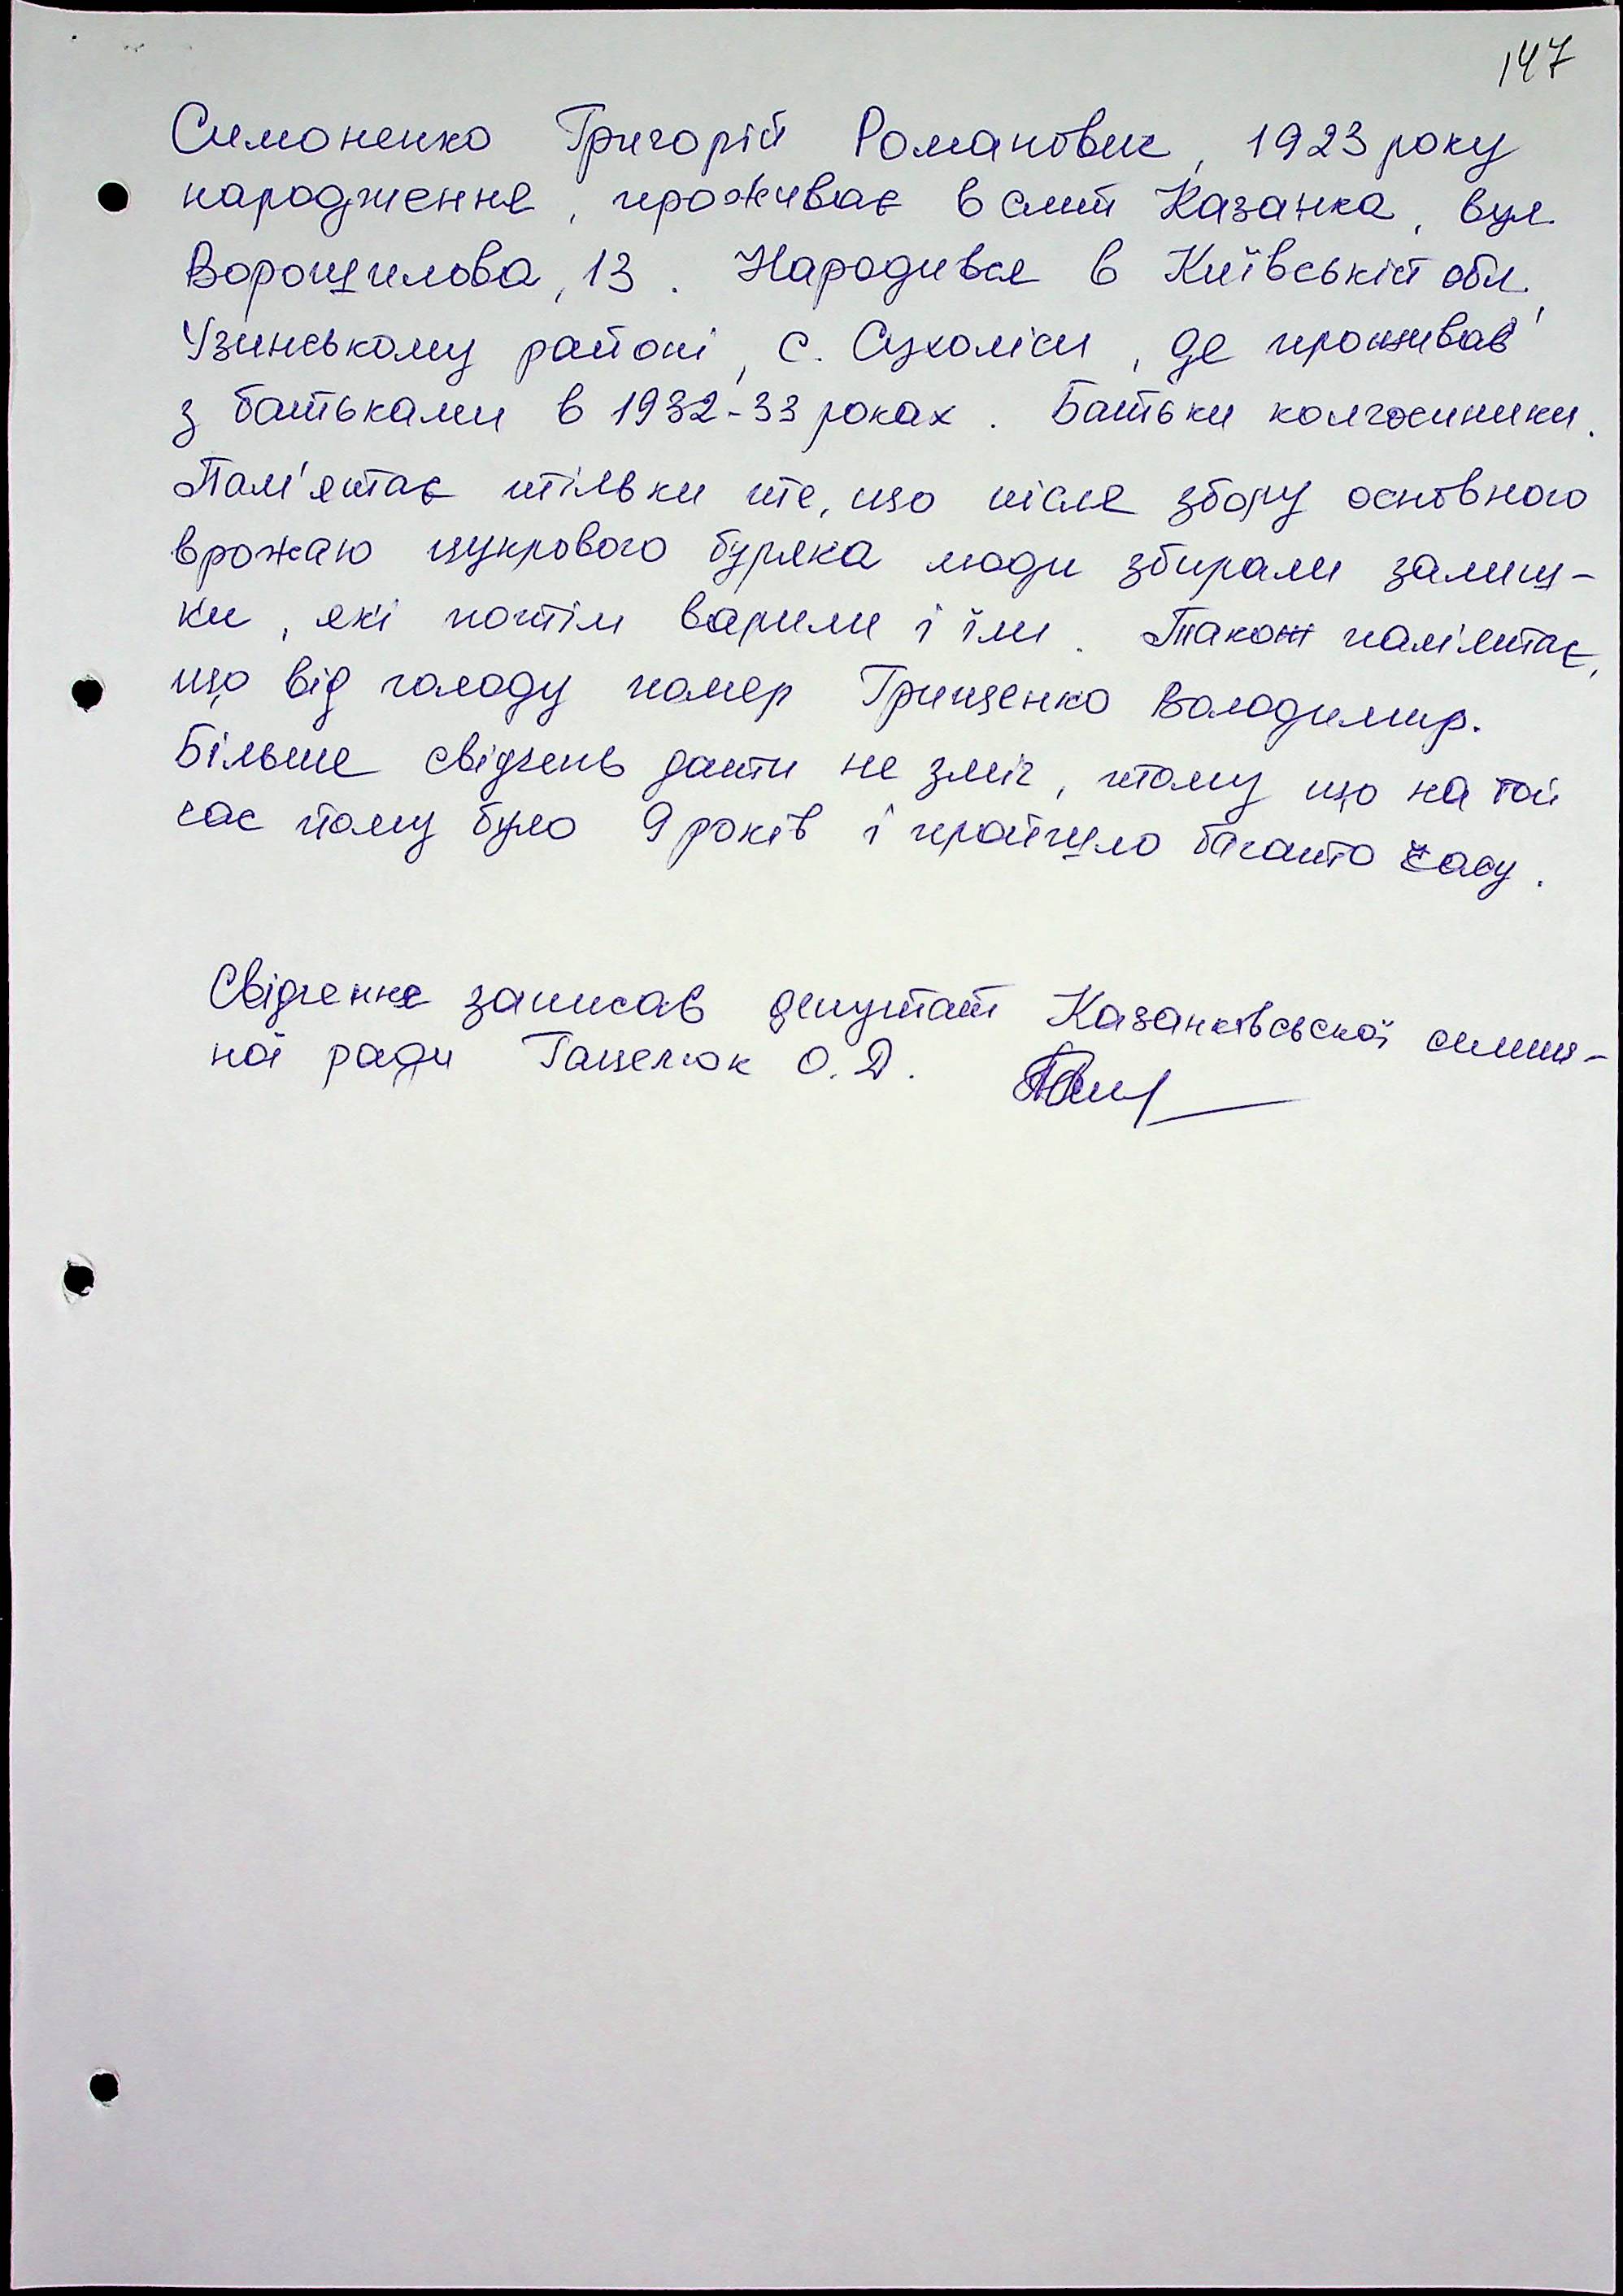 147
Симоненко Григорій Романович, 1923 року
народження, проживає в смт Казанка, вул.
Ворошилова, 13. Народився в Київській обл.,
Узинському районі, с. Сухоліси, де проживав
з батьками в 1932-33 роках. Батьки колгоспники.
Пам'ятає тільки те, що після збору основного
врожаю цукрового буряка люди збирали залиш-
ки, які потім варили і їли. Також пам'ятає,
що від голоду помер Грищенко Володимир.
Більше свідчень дати не зміг, тому що на той
час йому було 9 років і пройшло багато часу.
Свідчення записав депутат Казанківської селищ-
ної ради Гацелюк О. Д.